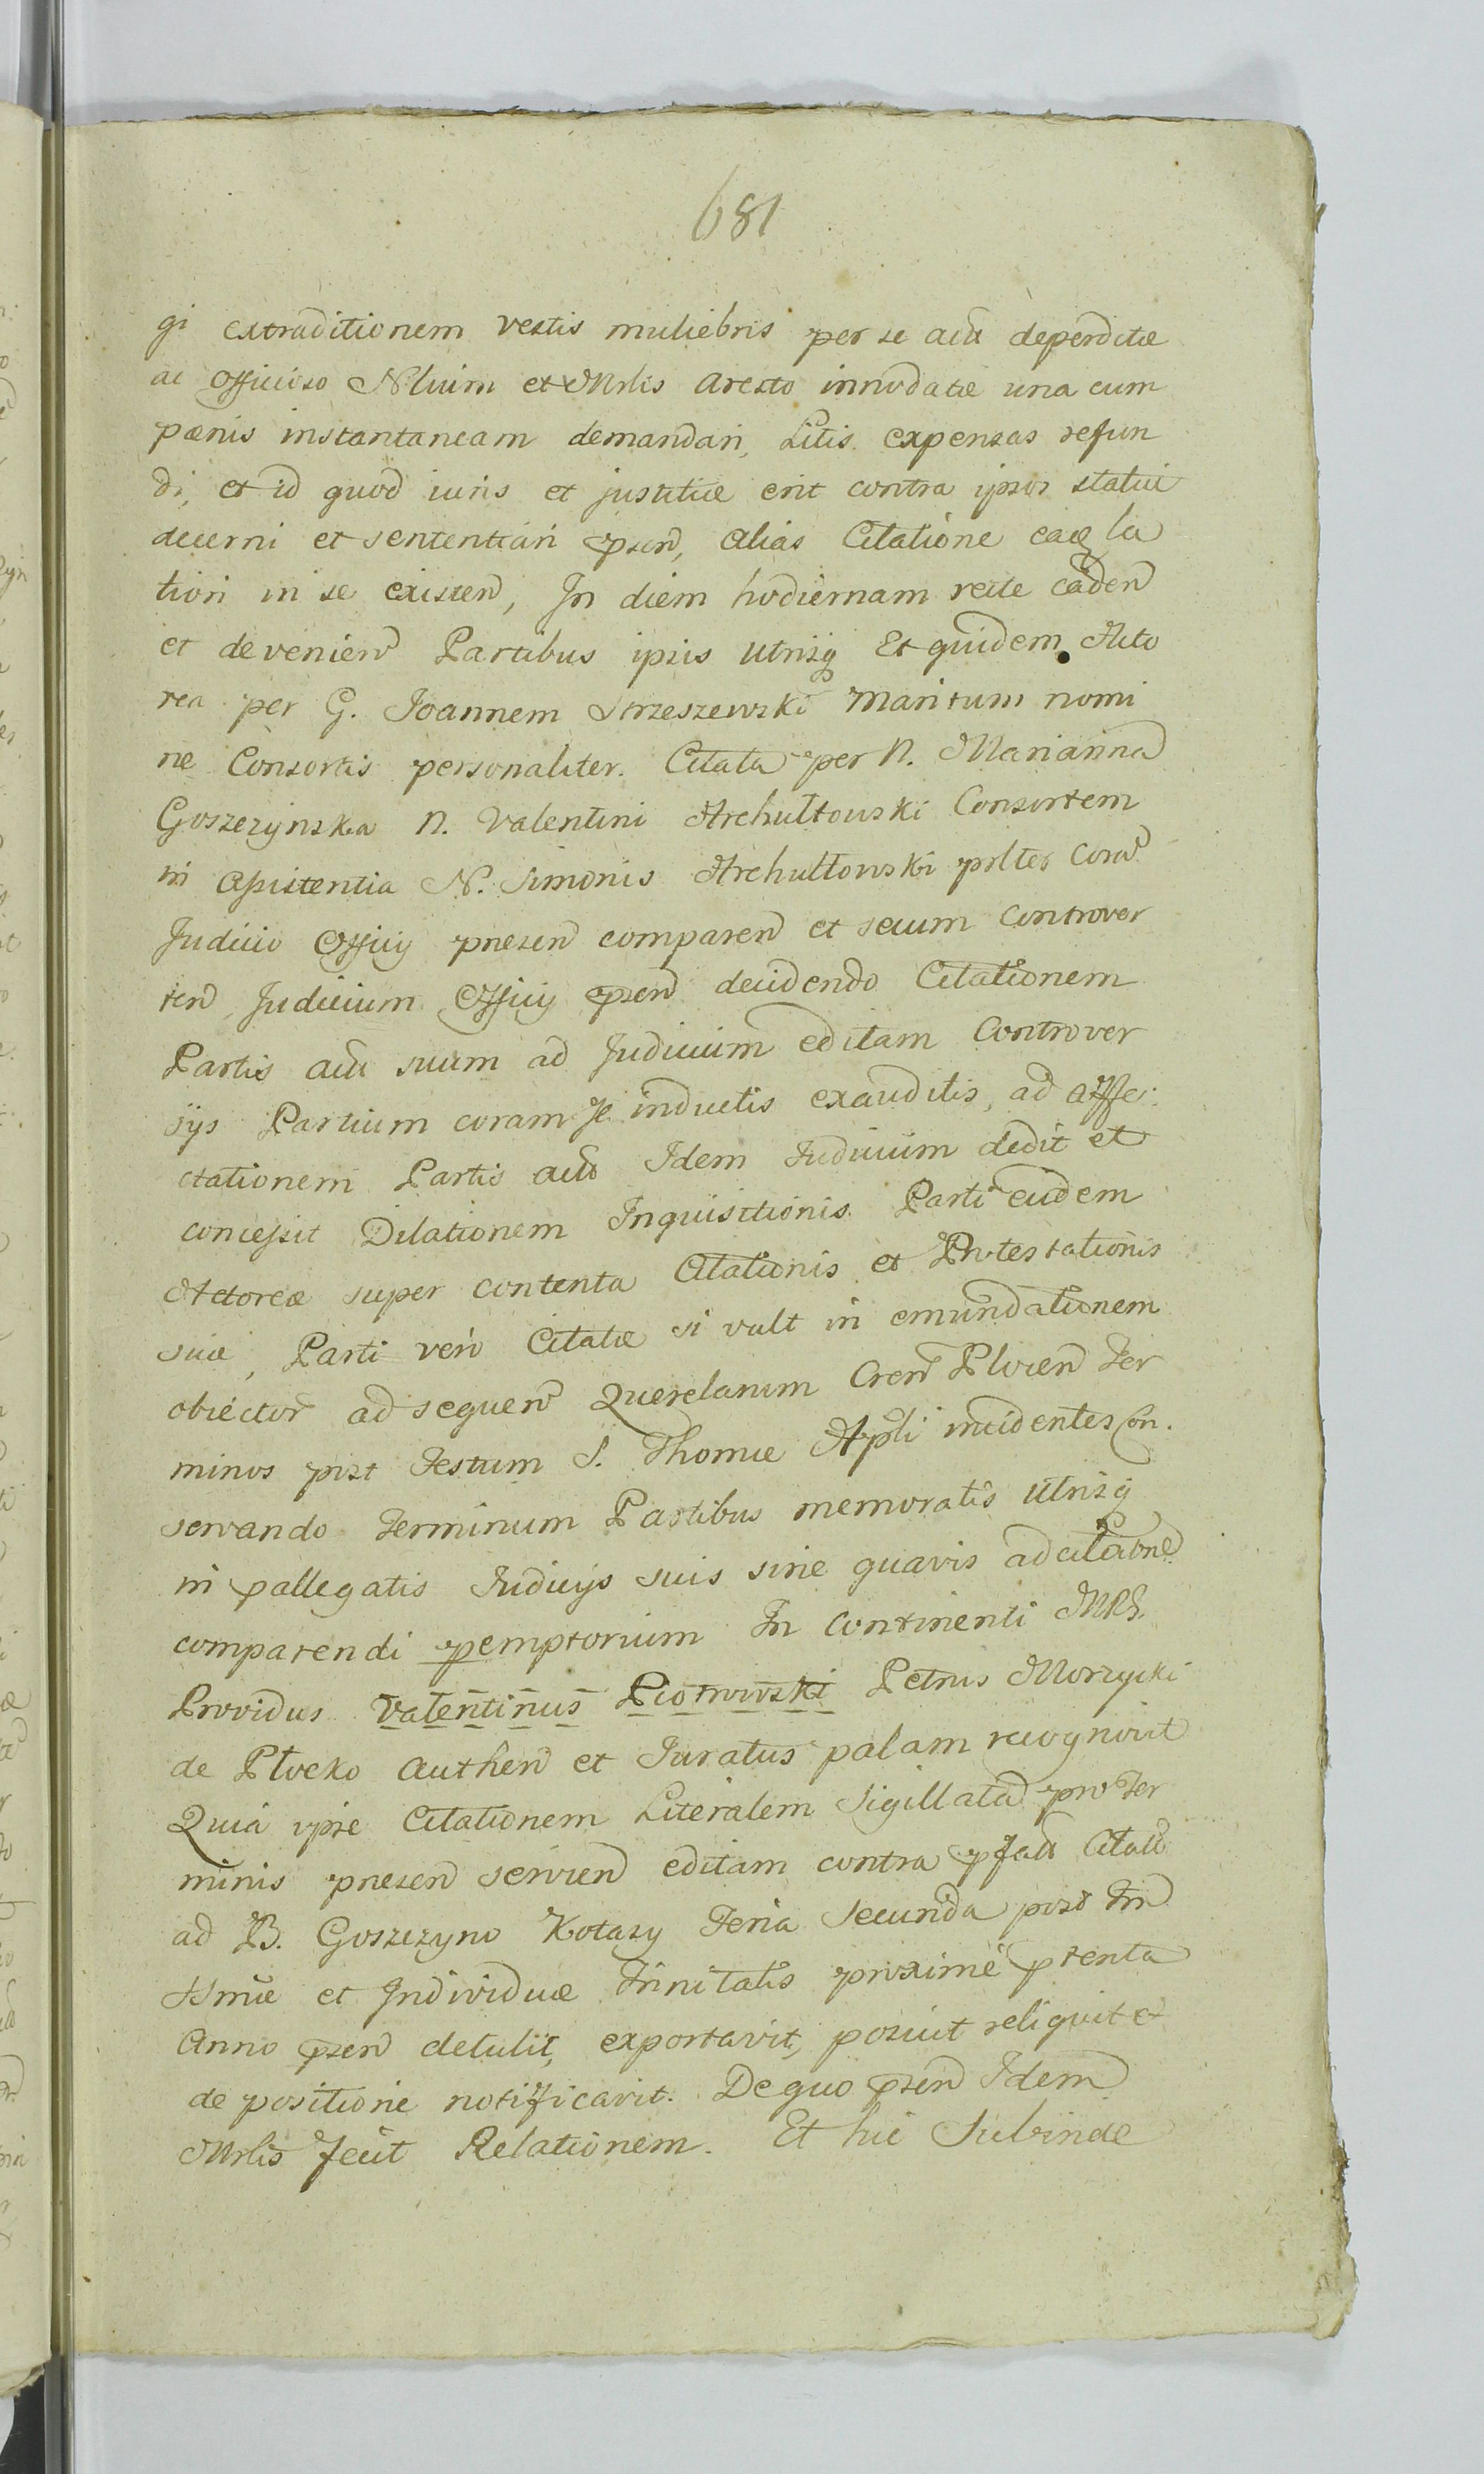 681
gi extraditionem vestis muliebris per se deperditæ
ac officioso Nlium et Mrlis aresto innodatæ una cum
pænis instantaneam demandari, Litis expensas refun
di, et id quod iuris et justitiæ erit contra ipsos statui
decerni et sententiari pnen, alias Citatione eaq la
tiori in se existen, In diem hodiernam recte caden
et devenien Partibus ipsis utrisq Et quidem Acto
rea per G. Joannem Strzeszewski Maritum nomi
ne Consortis personaliter. Citata per N. Marianna
Goszczynska N. Valentini Archultowski Consortem
in assistentia N. Simonis Archultowski prlter Cora
Judicio Officij pnesen comparen et secum Controver
ten Judicium Officij pnsen decidendo Citationem
Partis suum ad Judicium editam Controver
sijs Partium coram se inductis exauditis, ad affe
ctationem Partis Idem Judicium dedit et
concessit Dilationem Inquisitionis Parti eidem
Actoreæ super contenta Citationis et Protestationis
suæ, Parti vero Citatæ si vult in emundationem
obiector ad sequen Querelarum Cren Plocen Ter
minos post Festum S. Thomæ Apli incidentes Con
servando Terminum Partibus memoratis utrisq
in pallegatis Judicijs suis sine quavis adcitatione
comparendi pemptorium In Continenti MRS.
Providus Valentinus Piotrowski Petrus Morzycki
de Plocko Authen et Juratus palam recognovit
Quia ipse Citationem Literalem Sigillata pro Ter
minis pnesen servien editam contra pfat Citat
ad B. Goszczyno Kotasy Feria Secunda post Fm
SSmæ et Individuæ Trinitatis proxime ptenta
Anno pnsen detulit, exportavit, posuit reliquit et
de positione notificavit. De quo pnsen Idem
Mrlis fecit Relationem. Et hic Subinde